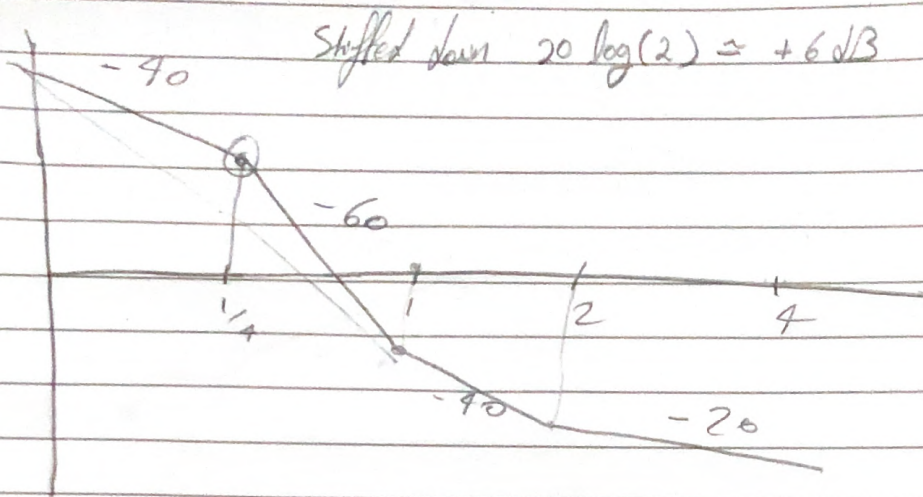 Shifted down 20 log(2) = +6 dB
-40
-60
1/4 1 2 4
-40 -20